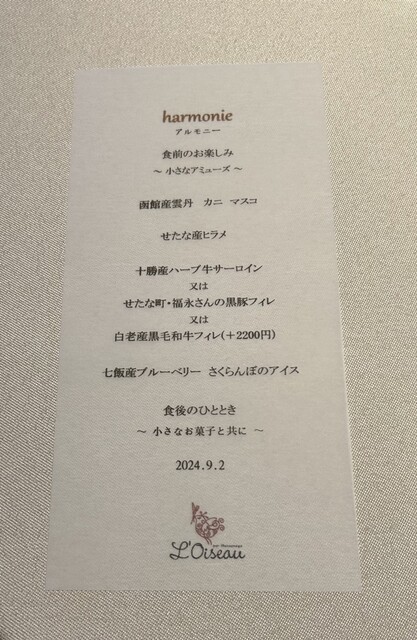 harmonie
アルモニー
食前のお楽しみ
～ 小さなアミューズ ～
函館産雲丹 カニ マスコ
せたな産ヒラメ
十勝産ハーブ牛サーロイン
又は
せたな町・福永さんの黒豚フィレ
又は
白老産黒毛和牛フィレ(＋2200円)
七飯産ブルーベリー さくらんぼのアイス
食後のひととき
～ 小さなお菓子と共に ～
2024.9.2
L'Oiseau